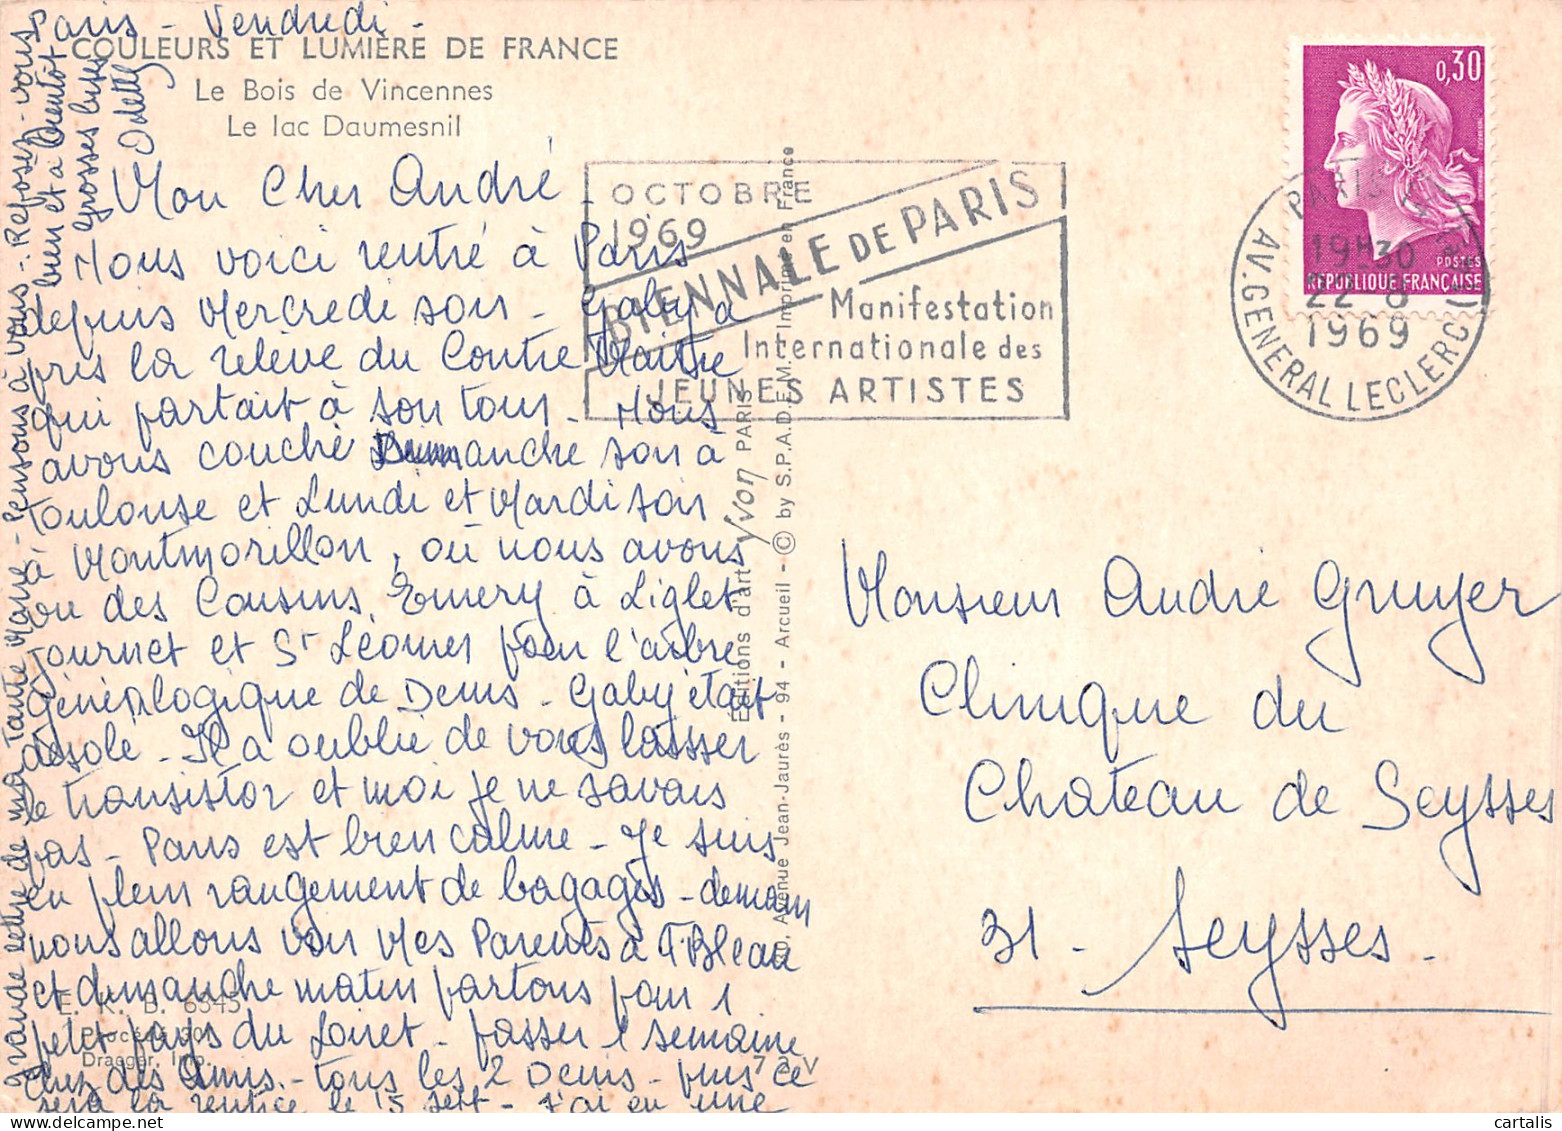 Paris - Vendredi -
COULEURS ET LUMIÈRE DE FRANCE
Le Bois de Vincennes
Le lac Daumesnil
Mon Cher André
Nous voici rentré à Paris
depuis Mercredi soir - Gaby a
pris la relève du Contre Maitre
qui partait à son tour - Nous
avons couché Dimanche soir à
Toulouse et Lundi et Mardi soir
à Montmorillon, où nous avons
vu des Cousins Emery à Liglet
Journet et St Léomer pour l'arbre
généalogique de Denis - Gaby était
désolé - Il a oublié de vous laisser
le transistor et moi je ne savais
pas - Paris est bien calme - Je suis
en plein rangement de bagages - demain
nous allons voir Mes Parents à F.Bleau
et dimanche matin partons pour 1
petit pays du Loiret - passer 1 semaine
chez des Amis - tous les 2 Denis - puis ce
sera la rentrée le 15 sept - J'ai eu une
grande lettre de ma Tante - Pensons à vous - Reposez-vous
bien et à bientôt
grosses bises
Odette
E. K. B. 6345
Procédé 301
Draeger, Imp.
Éditions d'art Yvon PARIS
Avenue Jean-Jaurès - 94 - Arcueil - © by S.P.A.D.E.M. Imprimé en France
7 2 V
OCTOBRE
1969
BIENNALE DE PARIS
Manifestation
Internationale des
JEUNES ARTISTES
0,30
POSTES
REPUBLIQUE FRANÇAISE
PARIS
19H30
22-8
1969
AV. GENERAL LECLERC
Monsieur André Gruyer
Clinique du
Château de Seysses
31 - Seysses -
cartalis